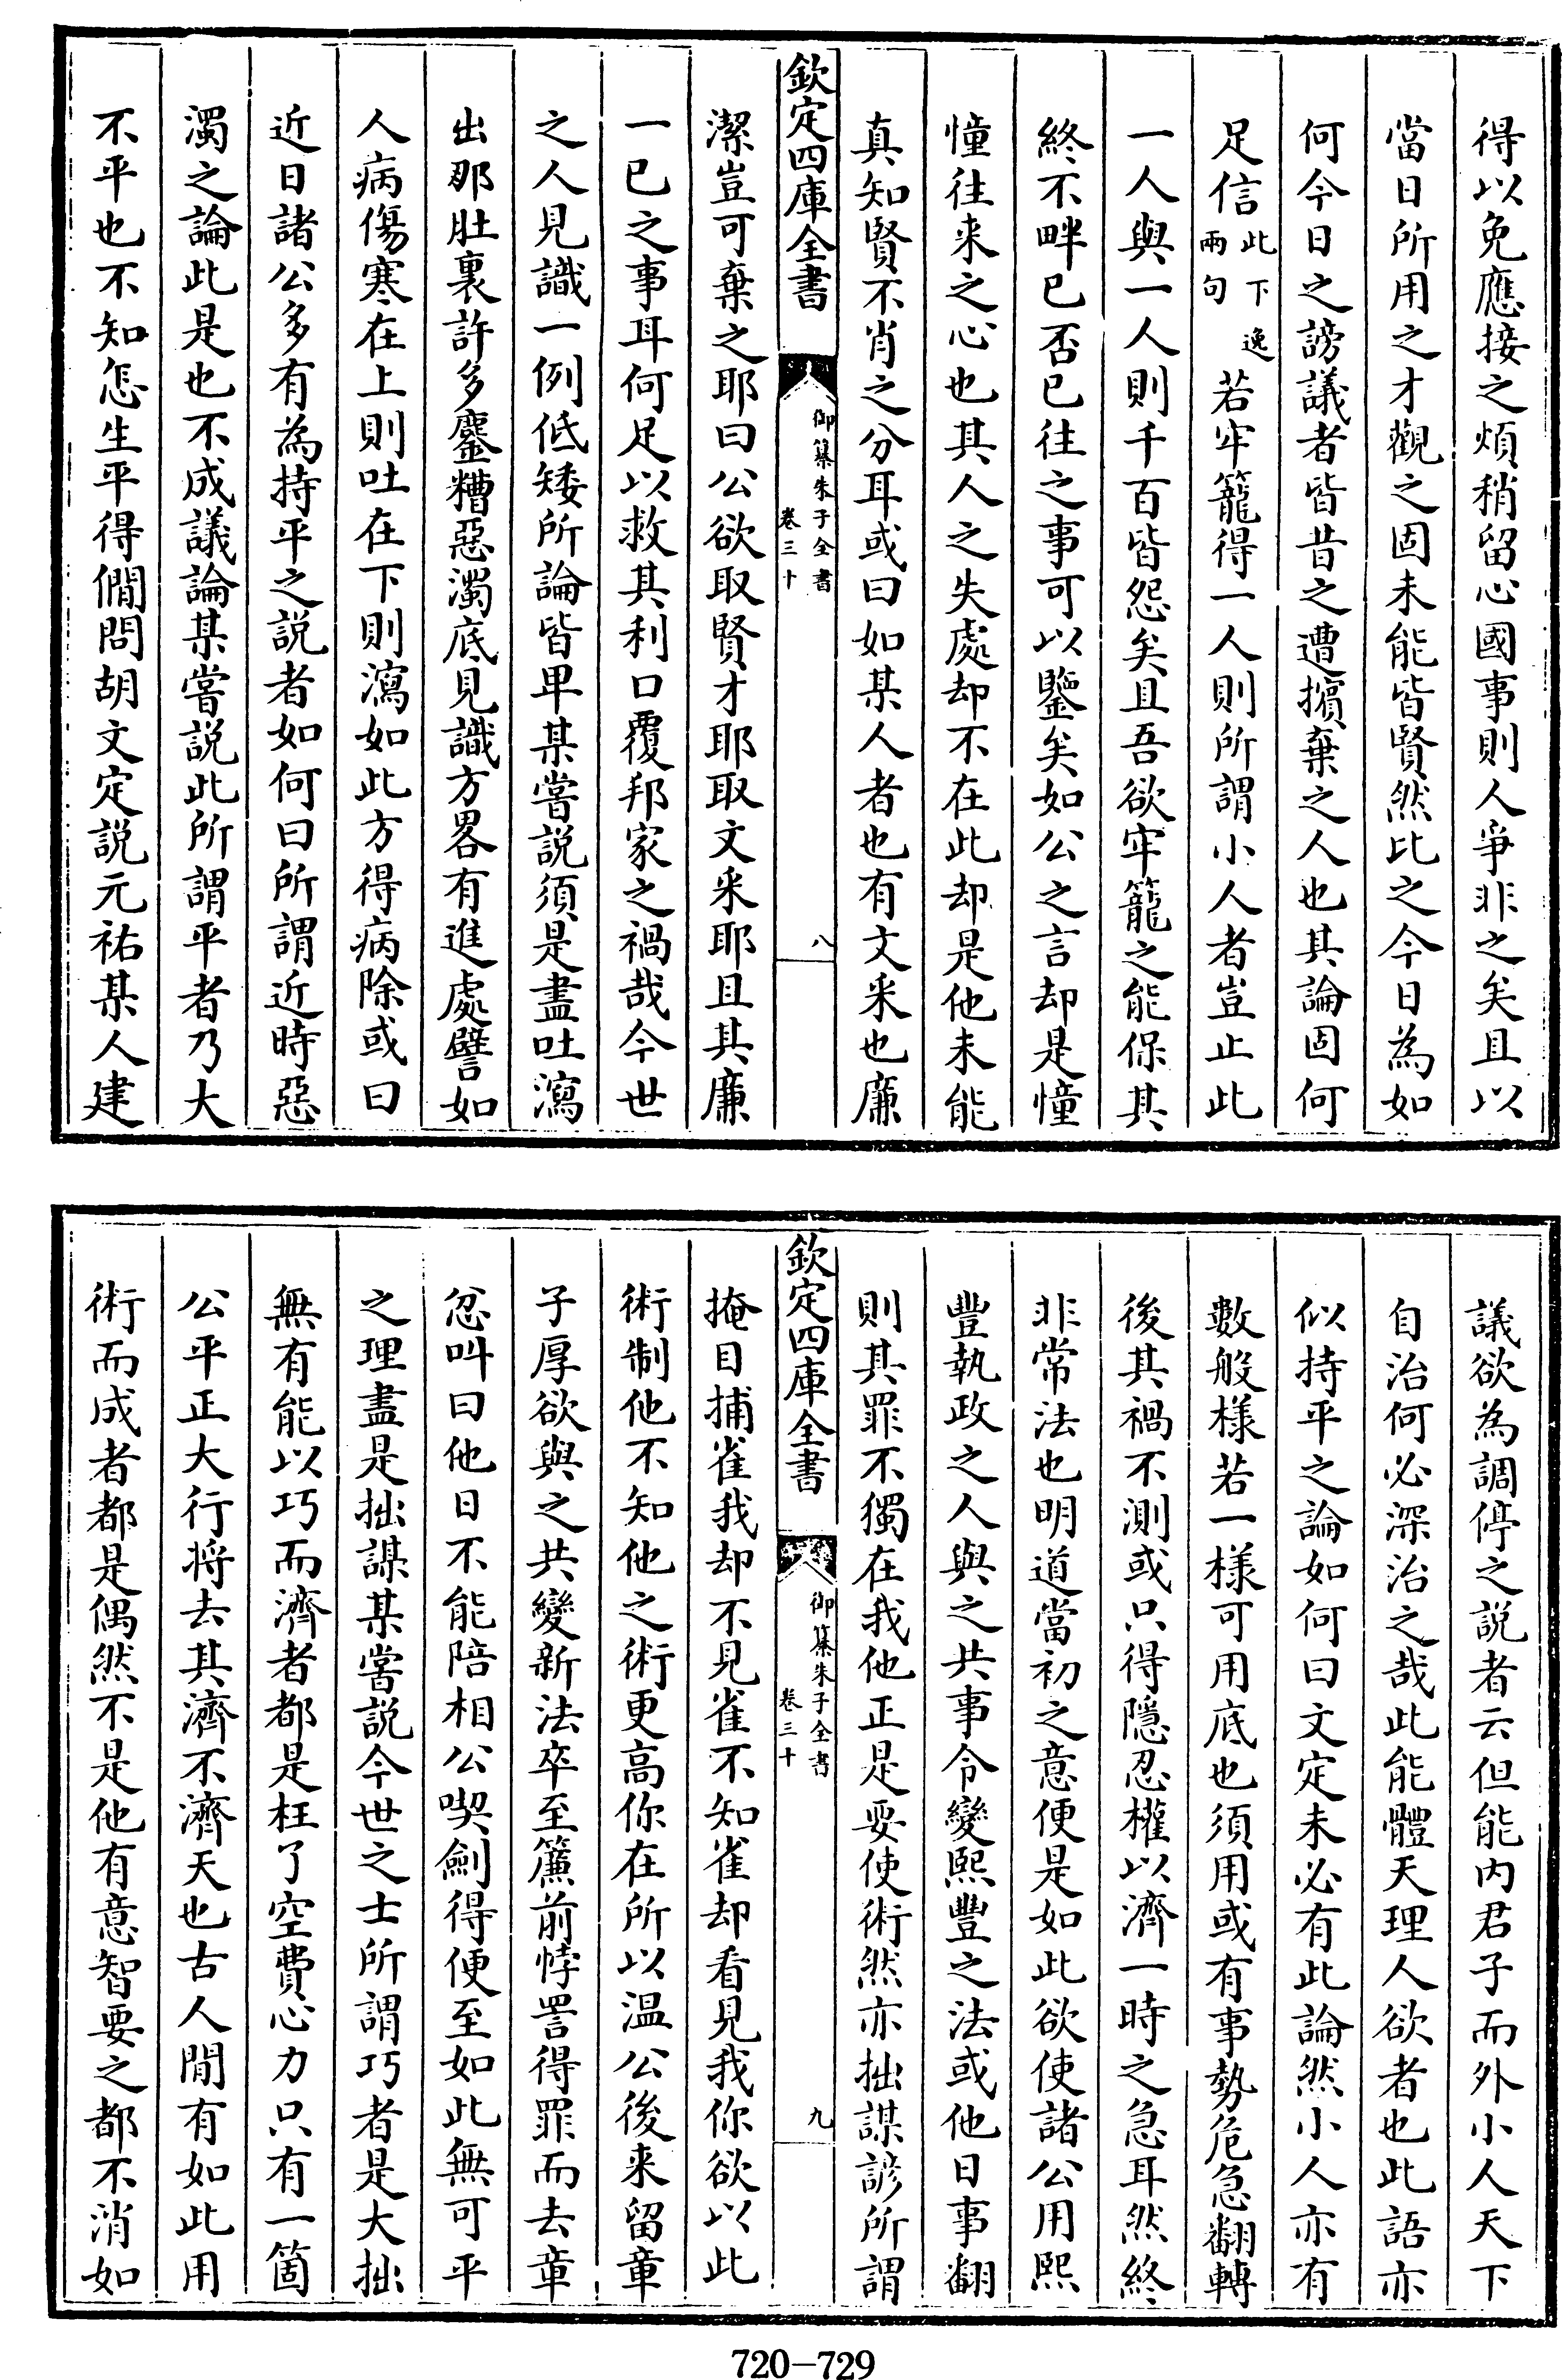 得以免應接之煩稍留心國事則人爭非之矣且以
當日所用之才觀之固未能皆賢然比之今日為如
何今日之謗議者皆昔之遭擯棄之人也其論固何
足信此下逸兩句若牢籠得一人則所謂小人者豈止此
一人與一人則千百皆怨矣且吾欲牢籠之能保其
終不畔已否已往之事可以鑒矣如公之言却是憧
憧往来之心也其人之失處却不在此却是他未能
真知賢不肖之分耳或曰如某人者也有文采也廉
欽定四庫全書
御纂朱子全書
卷三十
八
潔豈可棄之耶曰公欲取賢才耶取文采耶且其廉
一已之事耳何足以救其利口覆邦家之禍哉今世
之人見識一例低矮所論皆卑某嘗説須是盡吐瀉
出那肚裏許多鏖糟惡濁底見識方畧有進處譬如
人病傷寒在上則吐在下則瀉如此方得病除或曰
近日諸公多有為持平之説者如何曰所謂近時惡
濁之論此是也不成議論某嘗説此所謂平者乃大
不平也不知怎生平得僩問胡文定説元祐某人建
議欲為調停之説者云但能内君子而外小人天下
自治何必深治之哉此能體天理人欲者也此語亦
似持平之論如何曰文定未必有此論然小人亦有
數般様若一様可用底也須用或有事勢危急翻轉
後其禍不測或只得隱忍權以濟一時之急耳然終
非常法也明道當初之意便是如此欲使諸公用熙
豐執政之人與之共事令變熙豐之法或他日事翻
則其罪不獨在我他正是要使術然亦拙謀諺所謂
欽定四庫全書
御纂朱子全書
卷三十
九
掩目捕雀我却不見雀不知雀却看見我你欲以此
術制他不知他之術更高你在所以温公後来留章
子厚欲與之共變新法卒至簾前悖詈得罪而去章
忿叫曰他日不能陪相公喫劍得便至如此無可平
之理盡是拙謀某嘗説今世之士所謂巧者是大拙
無有能以巧而濟者都是枉了空費心力只有一箇
公平正大行将去其濟不濟天也古人閒有如此用
術而成者都是偶然不是他有意智要之都不消如
720-729